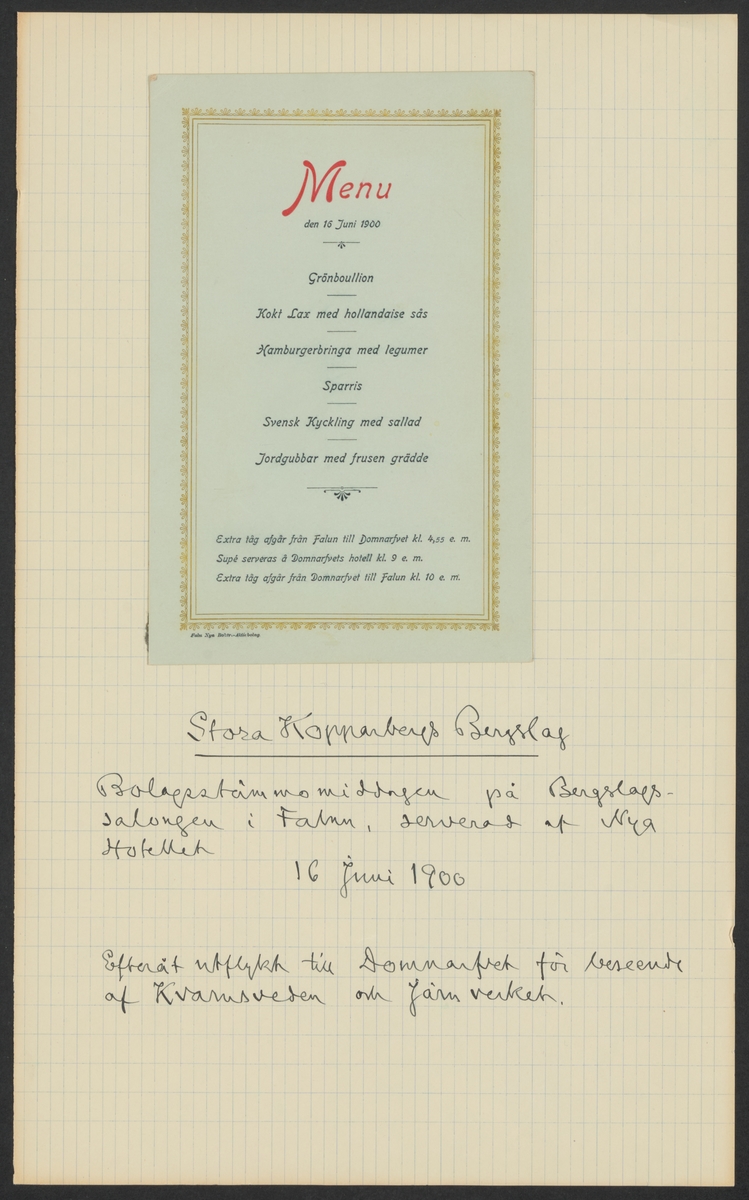 Menu
den 16 Juni 1900
Grönboullion
Kokt Lax med hollandaise sås
Hamburgerbringa med legumer
Sparris
Svensk Kyckling med sallad
Jordgubbar med frusen grädde
Extra tåg afgår från Falun till Domnarfvet kl. 4,55 e. m.
Supé serveras å Domnarfvets hotell kl. 9 e. m.
Extra tåg afgår från Domnarfvet till Falun kl. 10 e. m.
Falu Nya Boktr.-Aktiebolag.
Stora Kopparbergs Bergslag
Bolagsstämmomiddagen på Bergslags-
salongen i Falun, serverad af Nya
Hotellet
16 Juni 1900
Efteråt utflykt till Domnarfvet för beseende
af Kvarnsveden och Järnverket.